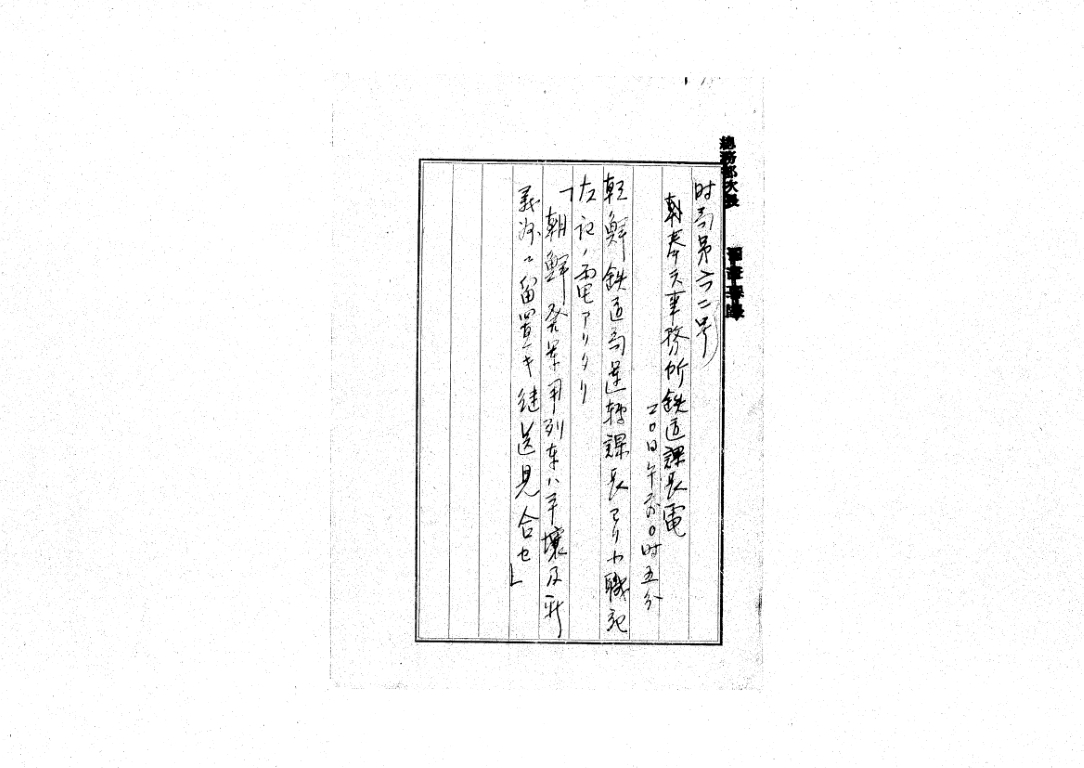 總務部次長
时局第六二号
朝奉天事務所鉄道課長電
二〇日午前〇时五分
朝鮮鉄道局運転課長ヨリ小職記
左記ノ電アリタリ
「朝鮮発軍用列車ハ平壌及新
義州ニ留置キ継送見合セ」